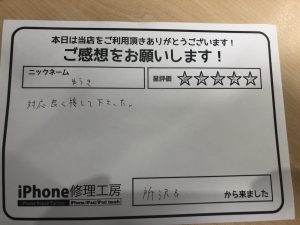 本日は当店をご利用頂きありがとうございます！
ご感想をお願いします！
ニックネーム
ゆうき
星評価
☆☆☆☆☆
対応良く接して下さった。
iPhone修理工房
iPhone/iPad/iPod touch
所沢市
から来ました